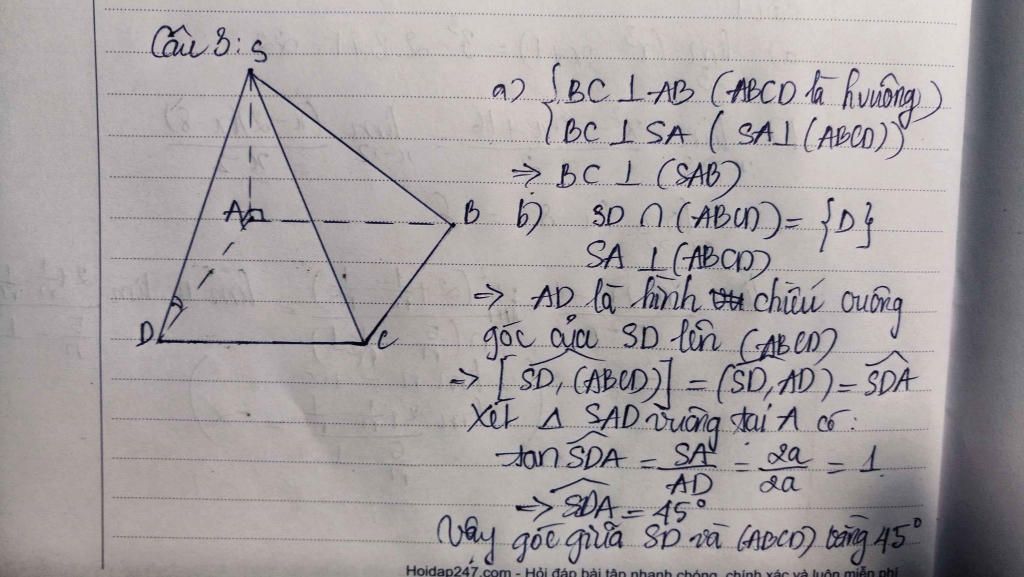 Câu 3:
S
A
B
D
C
a) { BC ⊥ AB (ABCD là hvuông)
{ BC ⊥ SA (SA ⊥ (ABCD))
⇒ BC ⊥ (SAB)
b) SD ∩ (ABCD) = {D}
SA ⊥ (ABCD)
⇒ AD là hình chiếu vuông
góc của SD lên (ABCD)
⇒ [SD, (ABCD)] = (SD, AD) = SDA
Xét Δ SAD vuông tại A có:
tan SDA = SA/AD = 2a/2a = 1
⇒ SDA = 45°
Vậy góc giữa SD và (ABCD) bằng 45°
Hoidap247.com - Hỏi đáp bài tập nhanh chóng, chính xác và luôn miễn phí